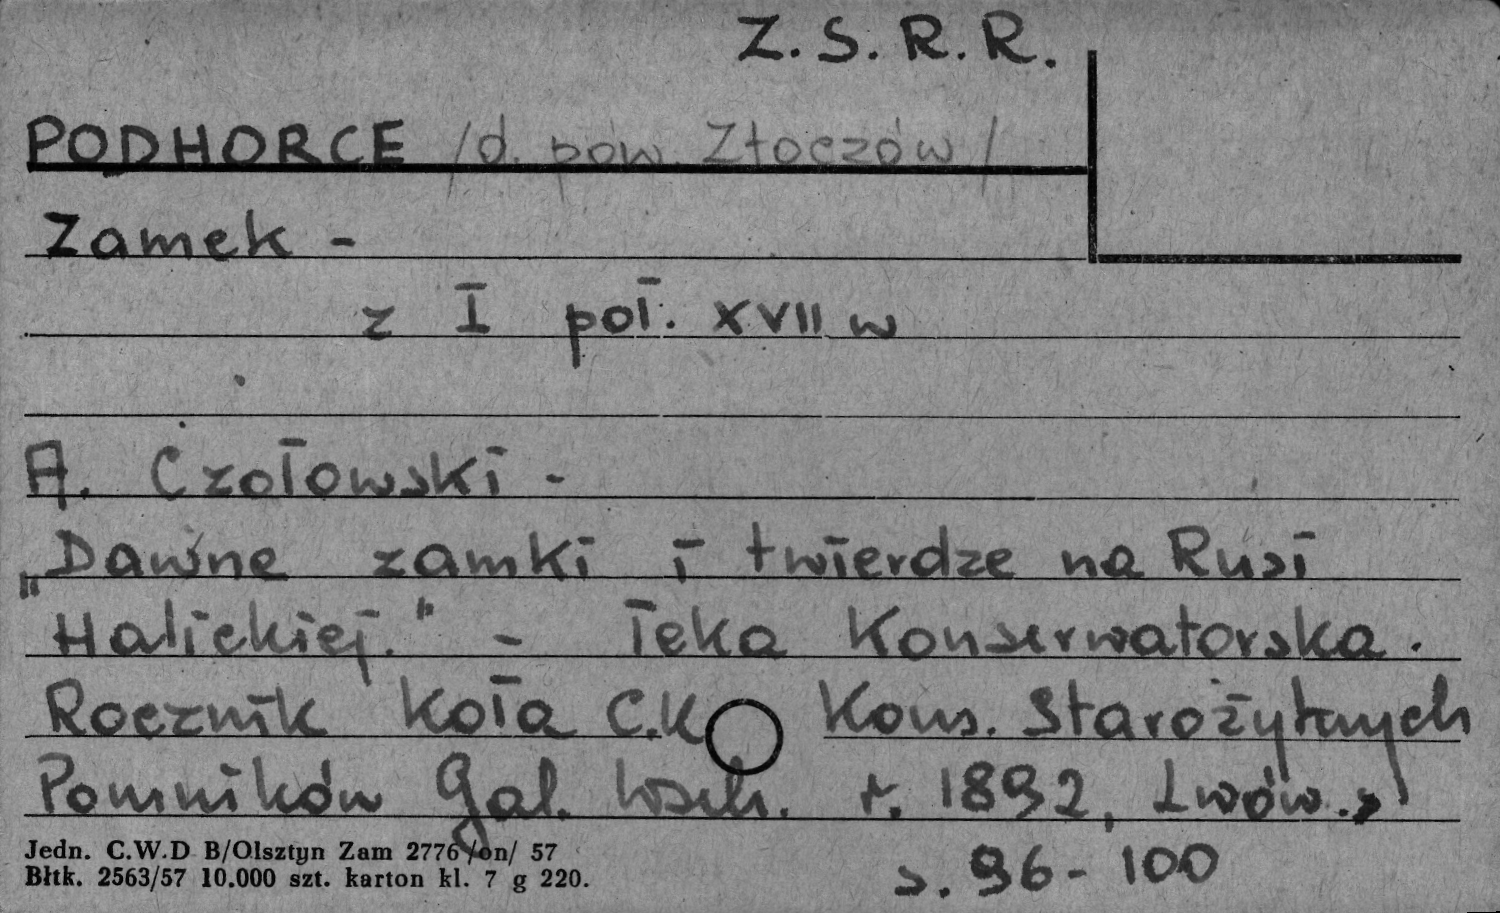 Z. S. R. R.
PODHORCE /d. pow. Złoczów/
Zamek -
z I poł. XVII w
A. Czołowski -
„Dawne zamki i twierdze na Rusi
Halickiej." - Teka Konserwatorska.
Rocznik Koła C.K. Kons. Starożytnych
Pomników Gal. Wsch. r. 1892, Lwów.,
s. 96-100
Jedn. C.W.D B/Olsztyn Zam 2776/on/ 57
Błtk. 2563/57 10.000 szt. karton kl. 7 g 220.